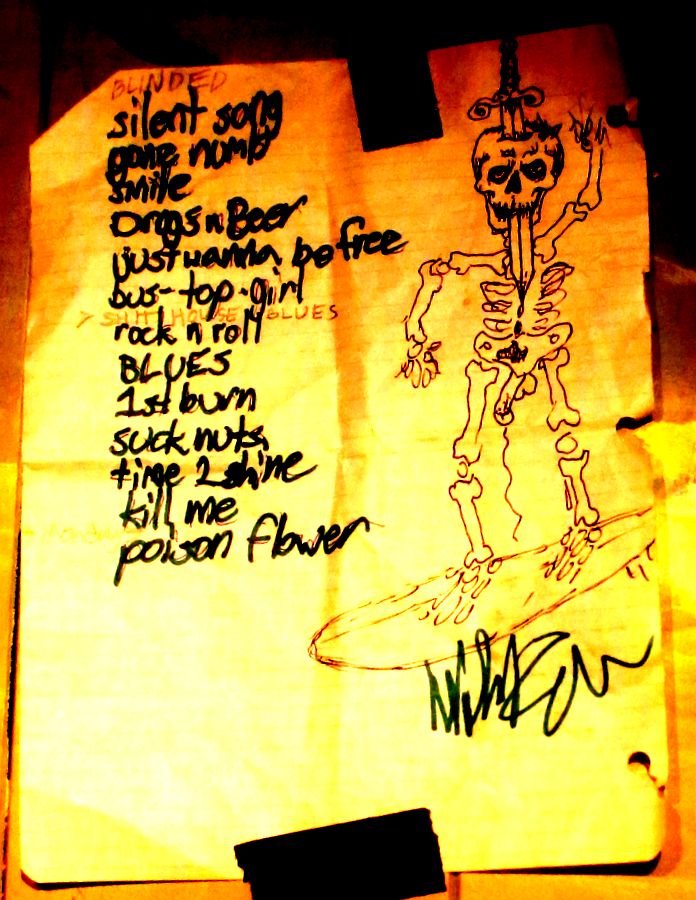 BLINDED
silent song
gone numb
smile
Drugs n Beer
just wanna be free
bus-top-girl
> SHIT HOUSE BLUES
rock n roll
BLUES
1st burn
suck nuts
time 2 shine
kill me
poison flower